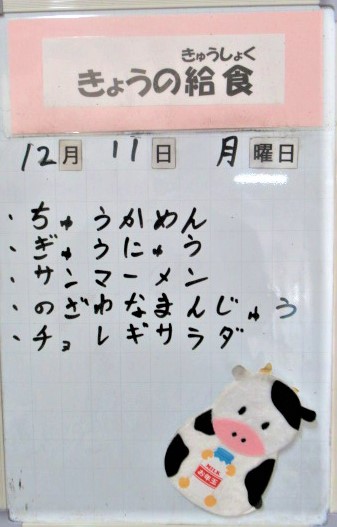 きゅうしょく
きょうの給食
12月 11日 月曜日
・ちゅうかめん
・ぎゅうにゅう
・サンマーメン
・のざわなまんじゅう
・チョレギサラダ
MILK